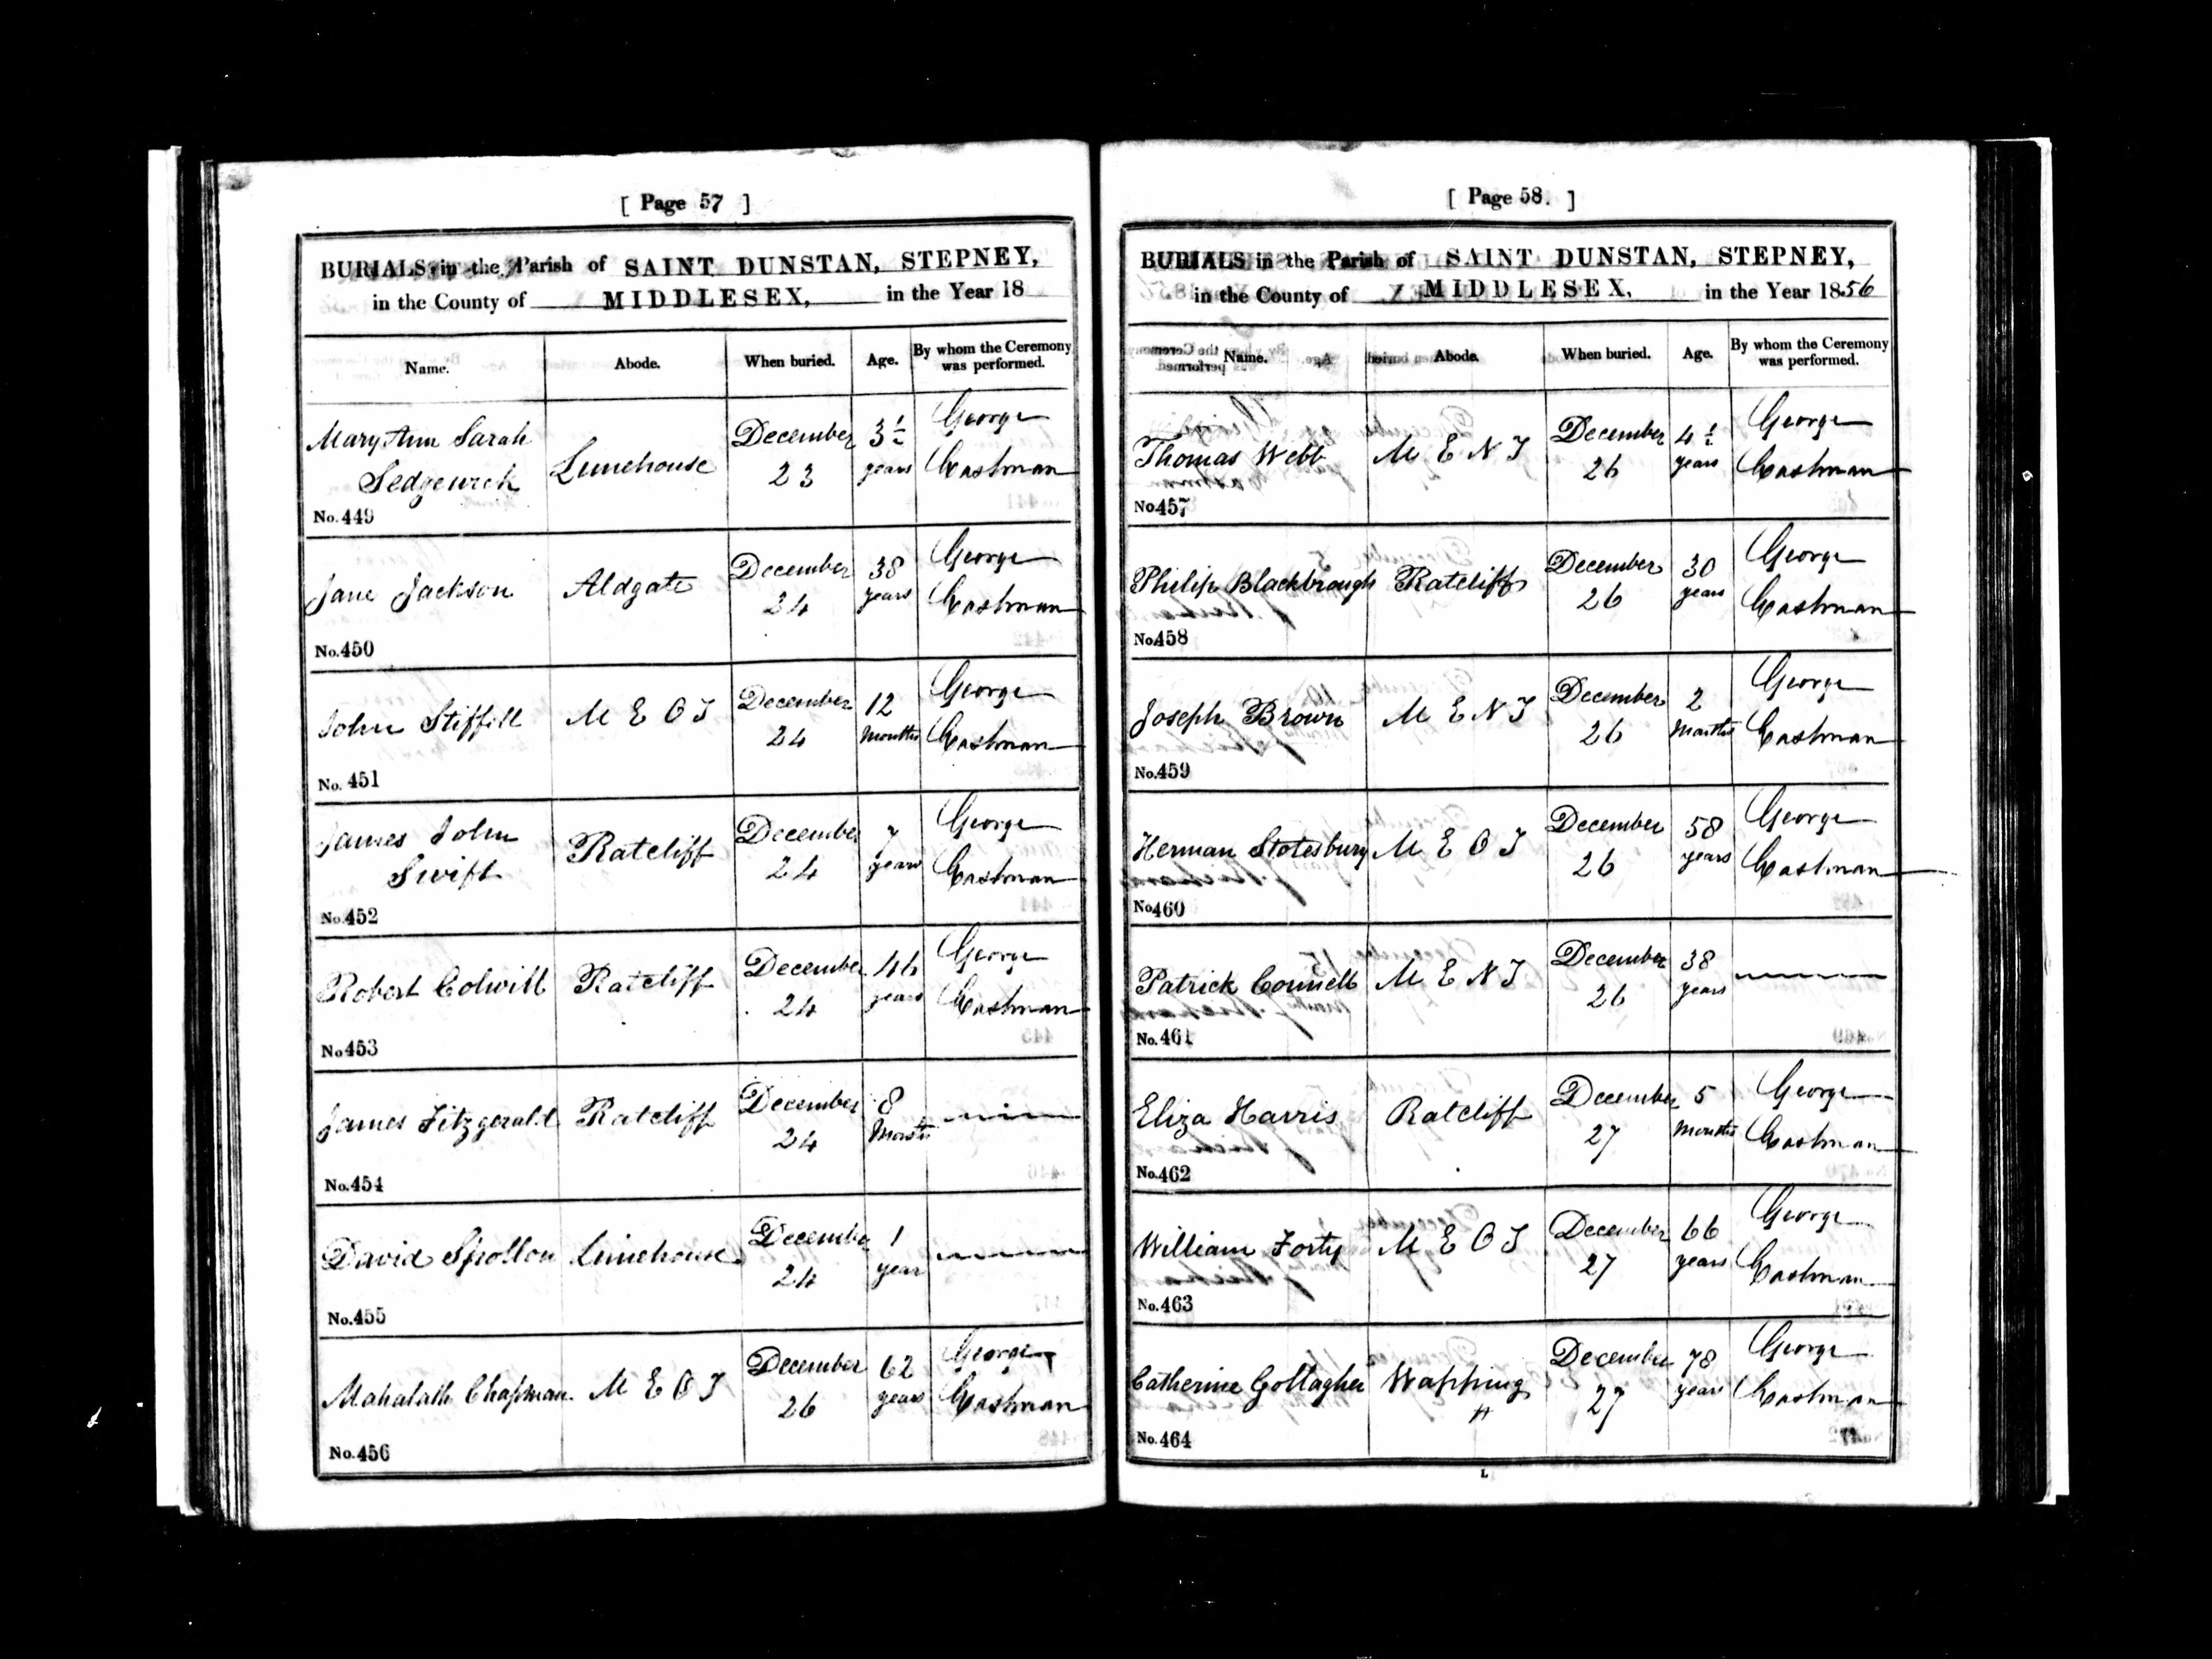 [ Page 57 ]
BURIALS in the Parish of SAINT DUNSTAN, STEPNEY,
in the County of MIDDLESEX, in the Year 18
Name. Abode. When buried. Age. By whom the Ceremony was performed.
Mary Ann Sarah Sedgewick Limehouse December 23 3½ years George Eastman
No. 449
Jane Jackson Aldgate December 24 38 years George Eastman
No. 450
John Stiffell M E O T December 24 12 Months George Eastman
No. 451
James John Swift Ratcliff December 24 7 years George Eastman
No. 452
Robert Colwill Ratcliff December 24 46 years George Eastman
No 453
James Fitzgerald Ratcliff December 24 8 Months
No. 454
David Limehouse December 24 1 year
No. 455
Mahalath Chapman M E O T December 26 62 years George Eastman
No. 456
[ Page 58. ]
BURIALS in the Parish of SAINT DUNSTAN, STEPNEY,
in the County of MIDDLESEX, in the Year 1856
Name. Abode. When buried. Age. By whom the Ceremony was performed.
Thomas Webb M E N T December 26 4½ years George Eastman
No 457
Philip Blackbrough Ratcliff December 26 30 years George Eastman
No 458
Joseph Brown M E N T December 26 2 Months George Eastman
No. 459
Herman Stotesbury M E O T December 26 58 years George Eastman
No 460
Patrick Connell M E N T December 26 38 years
No. 461
Eliza Harris Ratcliff December 27 5 Months George Eastman
No. 462
William Forty M E O T December 27 66 years George Eastman
No. 463
Catherine Gollagher Wapping December 27 78 years George Eastman
No. 464
L